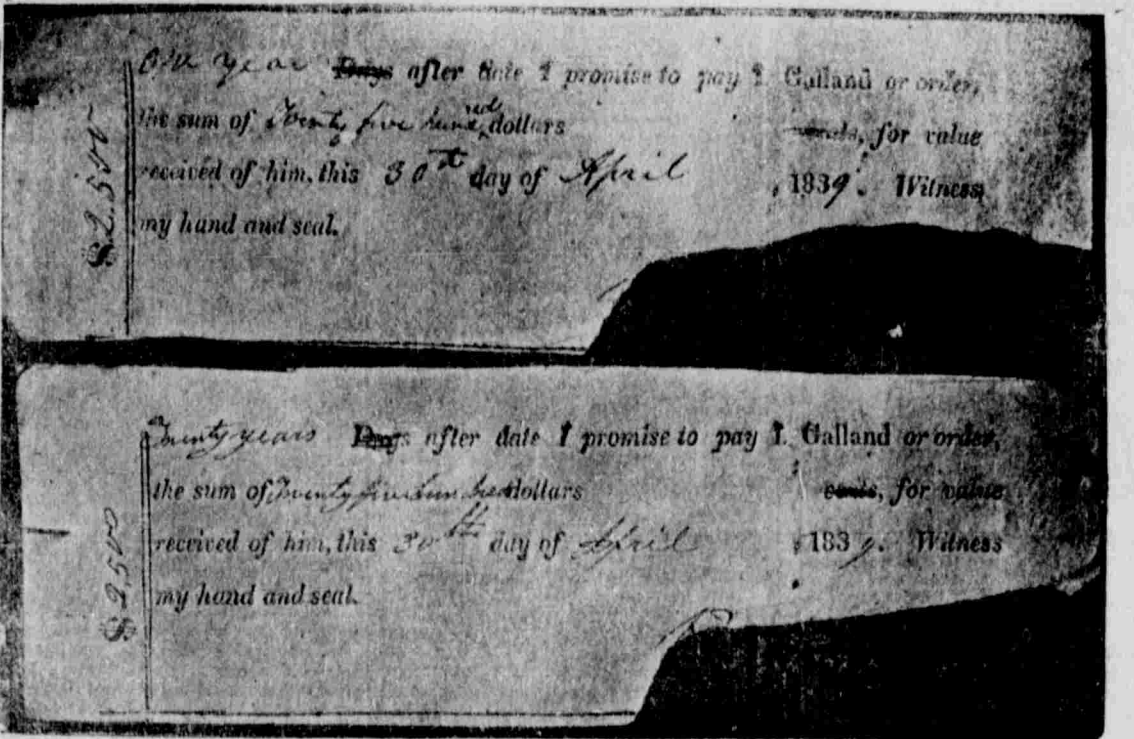 One year ~~Days~~ after date I promise to pay I. Galland or order,
the sum of Twenty five hundred dollars ~~cents~~, for value
received of him, this 30th day of April , 1839. Witness
my hand and seal.
$2500
Twenty years ~~Days~~ after date I promise to pay I. Galland or order,
the sum of Twenty five hundred dollars ~~cents~~, for value
received of him, this 30th day of April , 1839. Witness
my hand and seal.
$2500